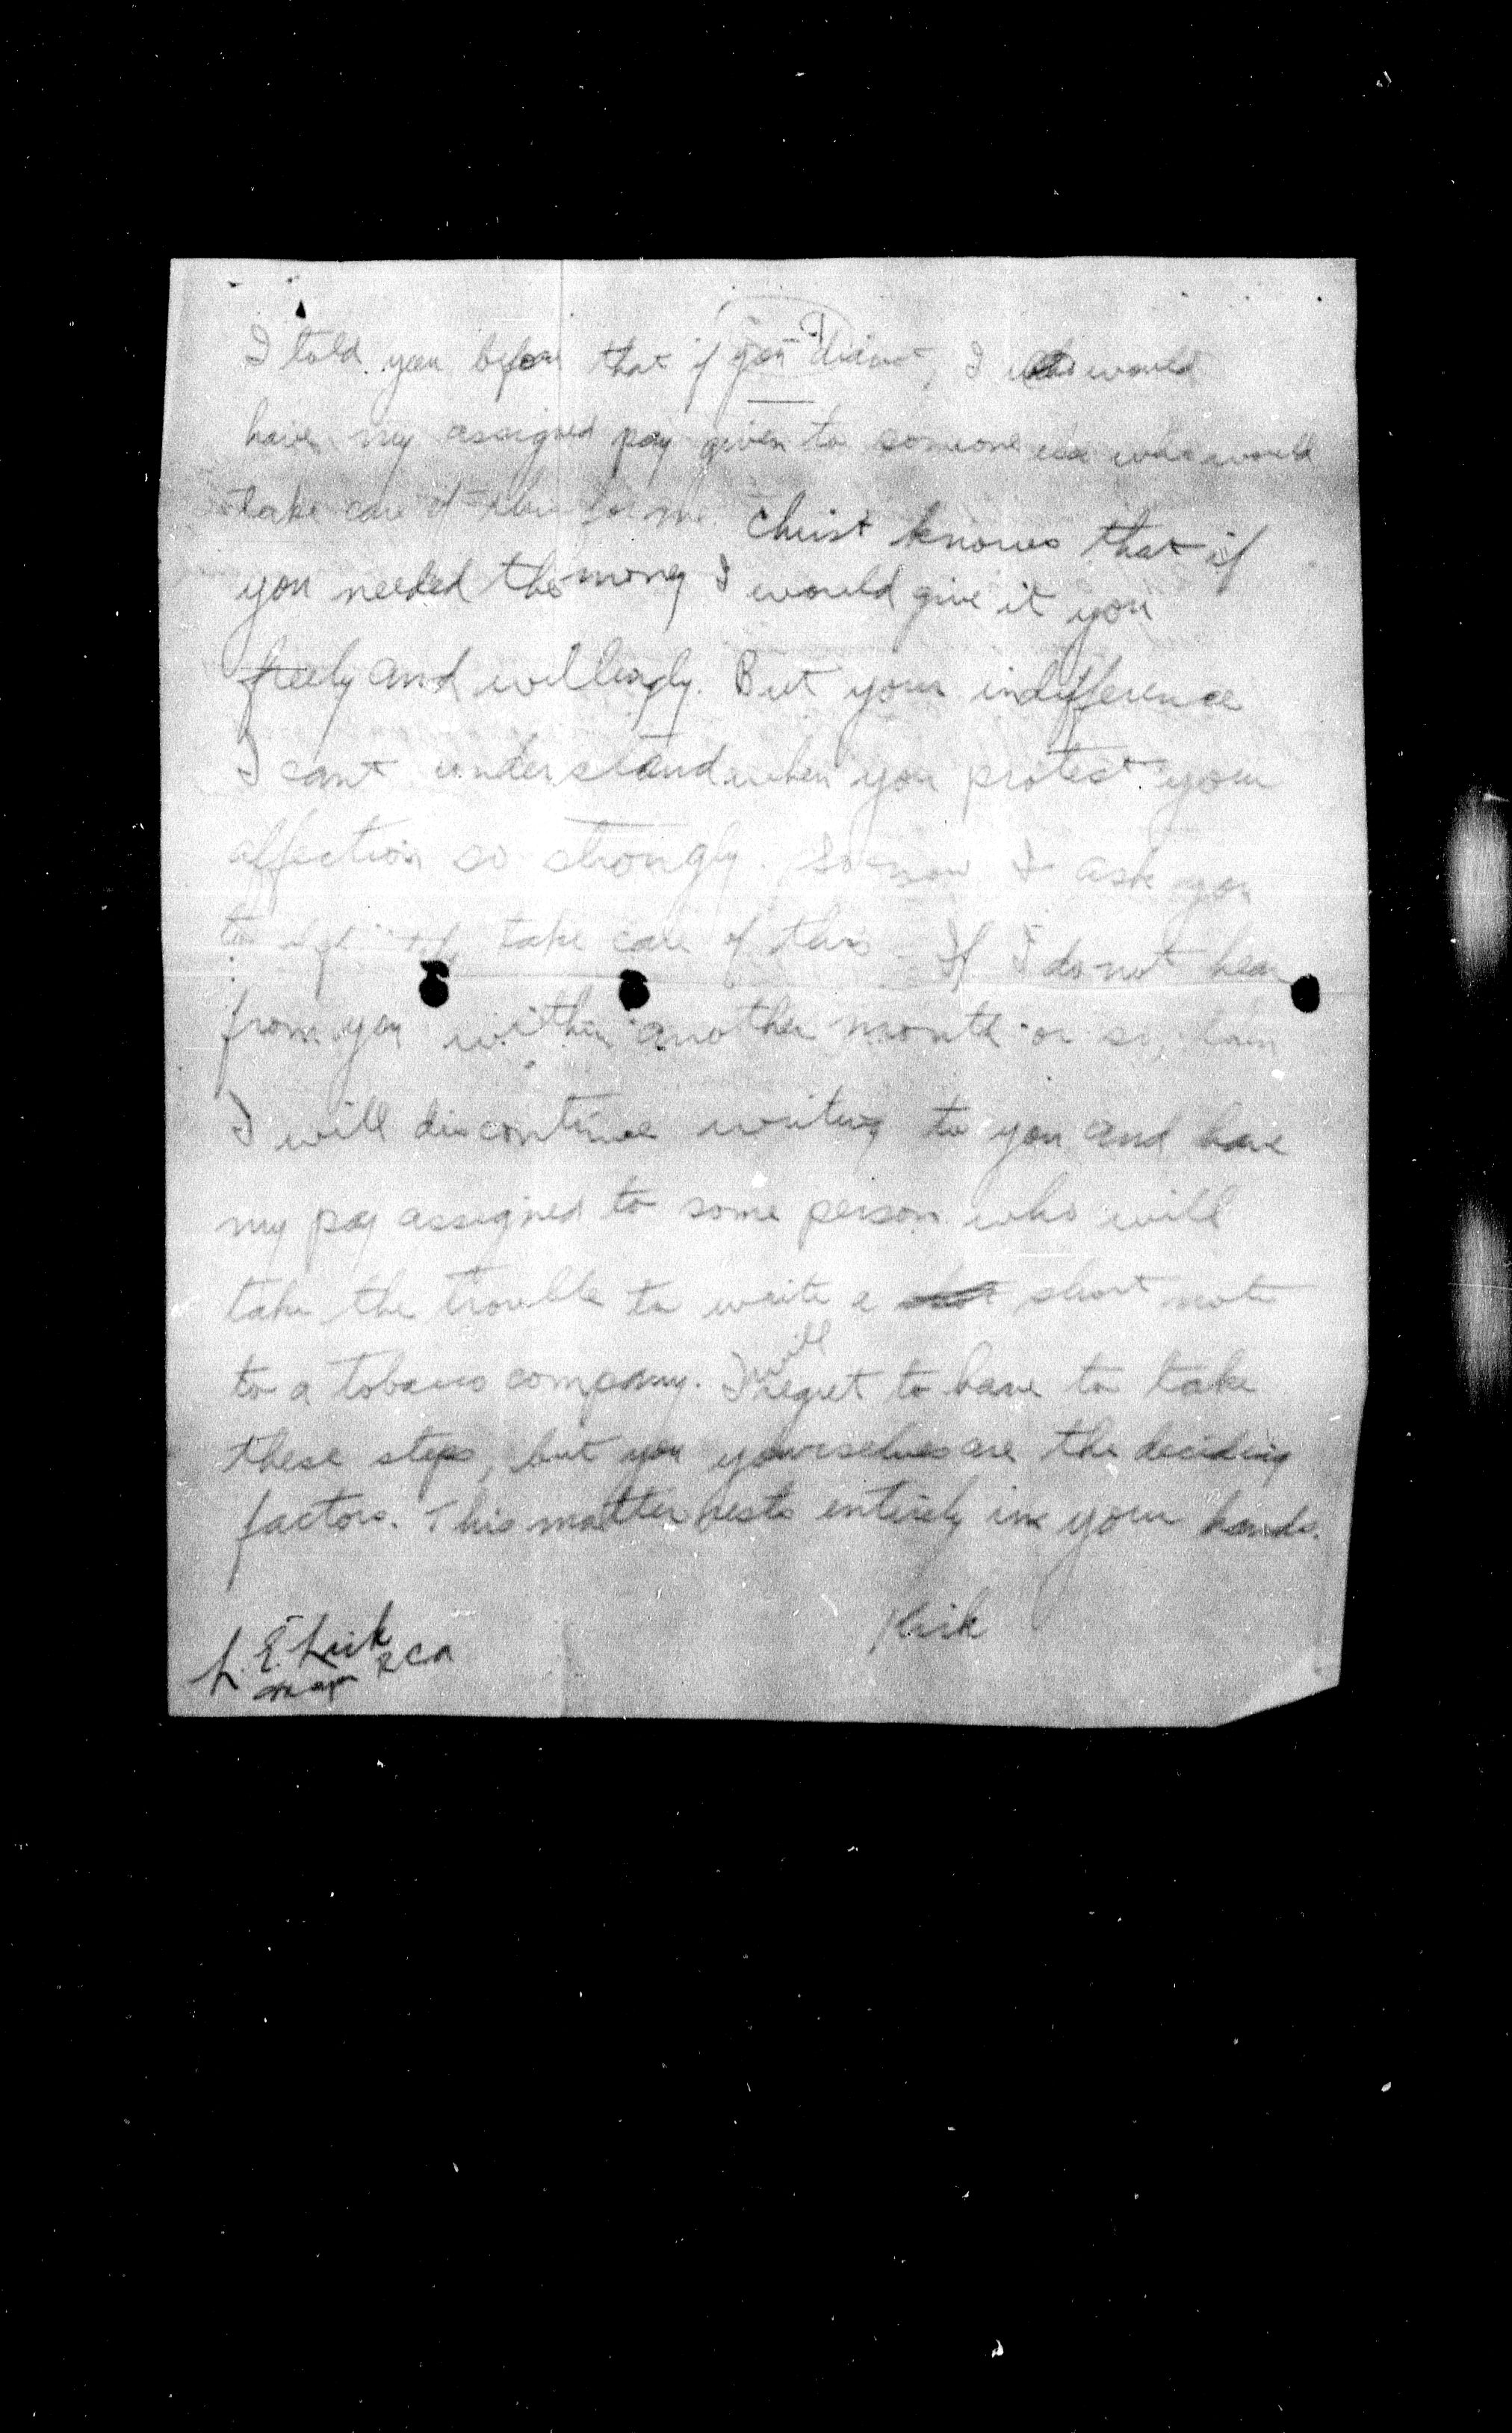 I told you before that if you didnt, I would
have my assigned pay given to someone else who would
take care of this for me. Christ knows that if
you needed the money I would give it you
freely and willingly. But your indifference
I cant understand when you protest your
affection so strongly. So now I ask you
to take care of this. If I do not hear
from you within another month or so,
I will discontinue writing to you and have
my pay assigned to some person who will
take the trouble to write a short note
to a tobacco company. I will regret to have to take
these steps, but you yourselves are the deciding
factors. This matter rests entirely in your hands.
L. E. RCA